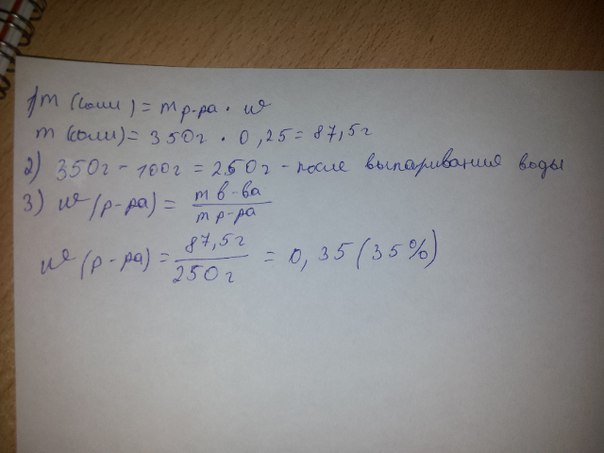 1) m (соли) = m р-ра · w
m (соли) = 350г · 0,25 = 87,5г
2) 350г - 100г = 250г - после выпаривания воды
3) w (р-ра) = m в-ва / m р-ра
w (р-ра) = 87,5г / 250г = 0,35 (35%)